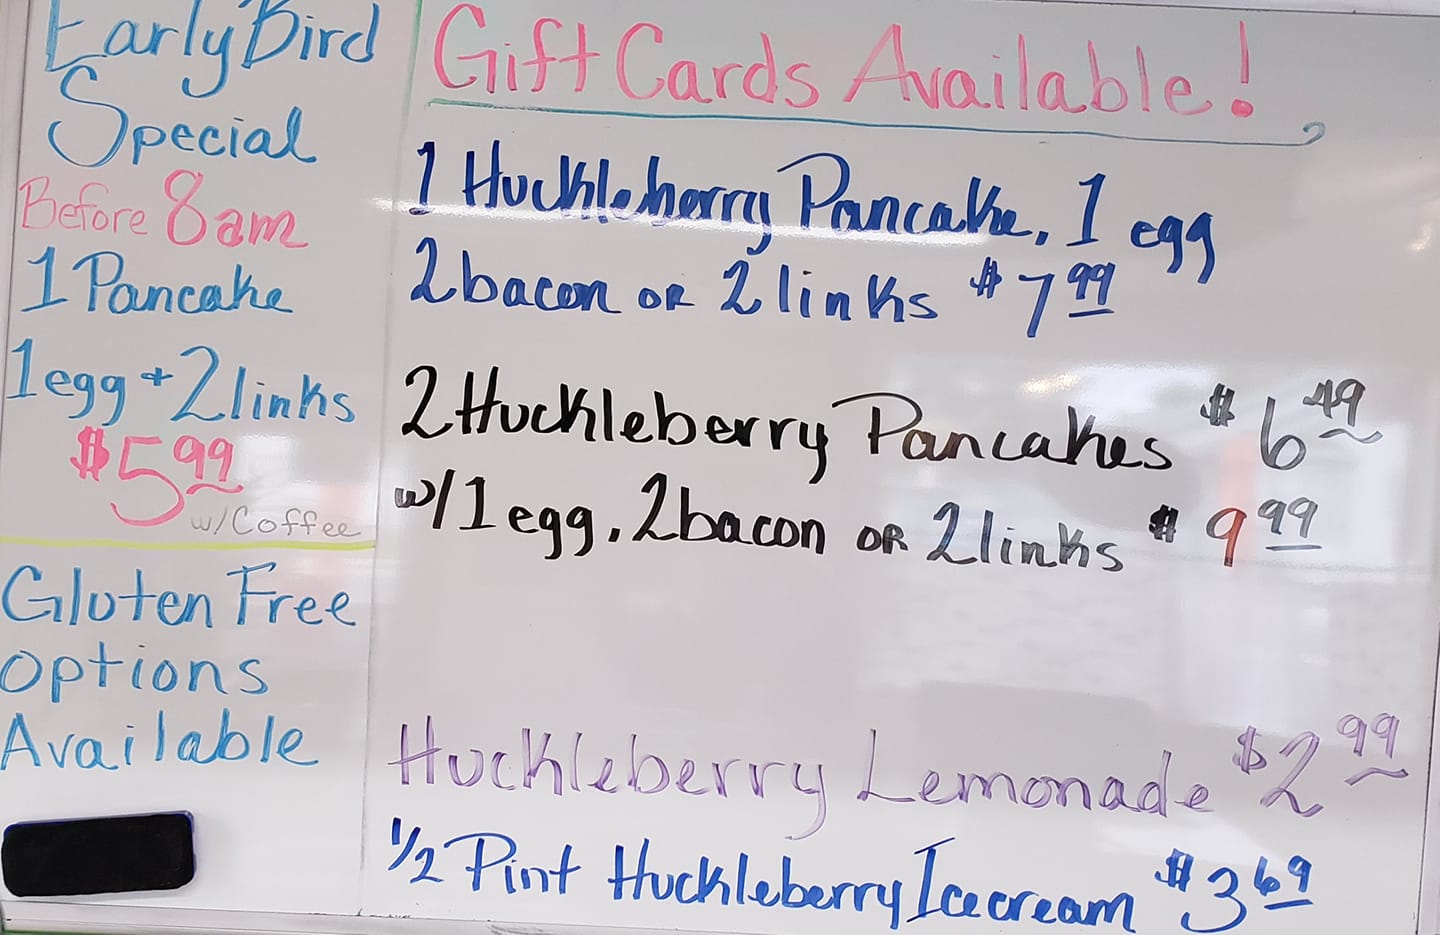 Early Bird
Special
Before 8am
1 Pancake
1 egg + 2 links
$5.99
w/Coffee
Gluten Free
options
Available
Gift Cards Available!
1 Huckleberry Pancake, 1 egg
2 bacon or 2 links $7.99
2 Huckleberry Pancakes $6.49
w/1 egg, 2 bacon or 2 links $9.99
Huckleberry Lemonade $2.99
1/2 Pint Huckleberry Icecream $3.69